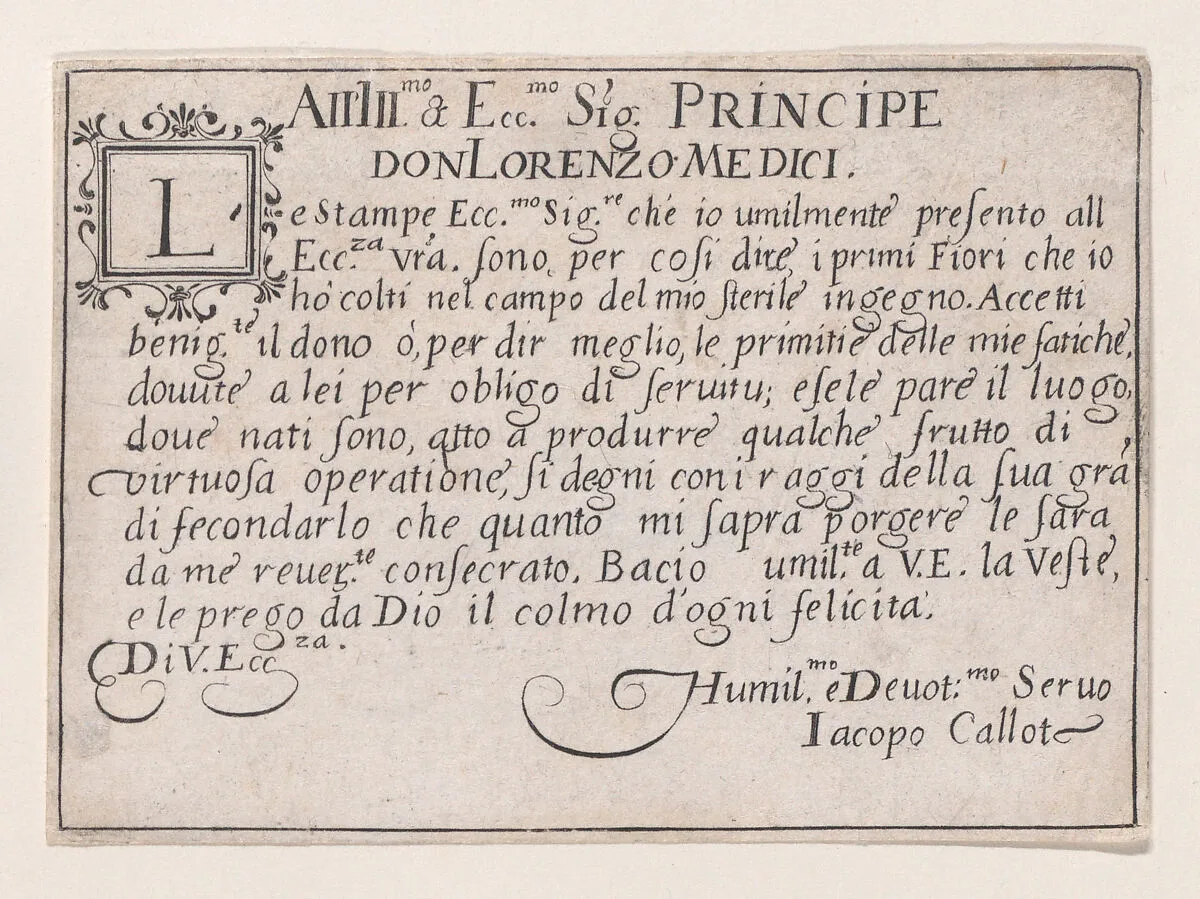 All Ill.mo & Ecc.mo Sig. PRINCIPE
DON LORENZO MEDICI.
Le Stampe Ecc.mo Sig.re che io umilmente preſento all
Ecc.za vrã. ſono, per coſi dire, i primi Fiori che io
hò colti nel campo del mio ſterile ingegno. Accetti
benig.te il dono ò, per dir meglio, le primitie delle mie fatiche,
douute a lei per obligo di ſeruitu; e ſe le pare il luogo,
doue nati ſono, atto a produrre qualche frutto di
virtuoſa operatione, ſi degni con i raggi della ſua grã
di fecondarlo che quanto mi ſapra porgere le ſara
da me reuer.te conſecrato. Bacio umil.te a V.E. la Veſte,
e le prego da Dio il colmo d'ogni felicita.
Di V. Ecc.za.
Humil.mo e Deuot:mo Seruo
Iacopo Callot